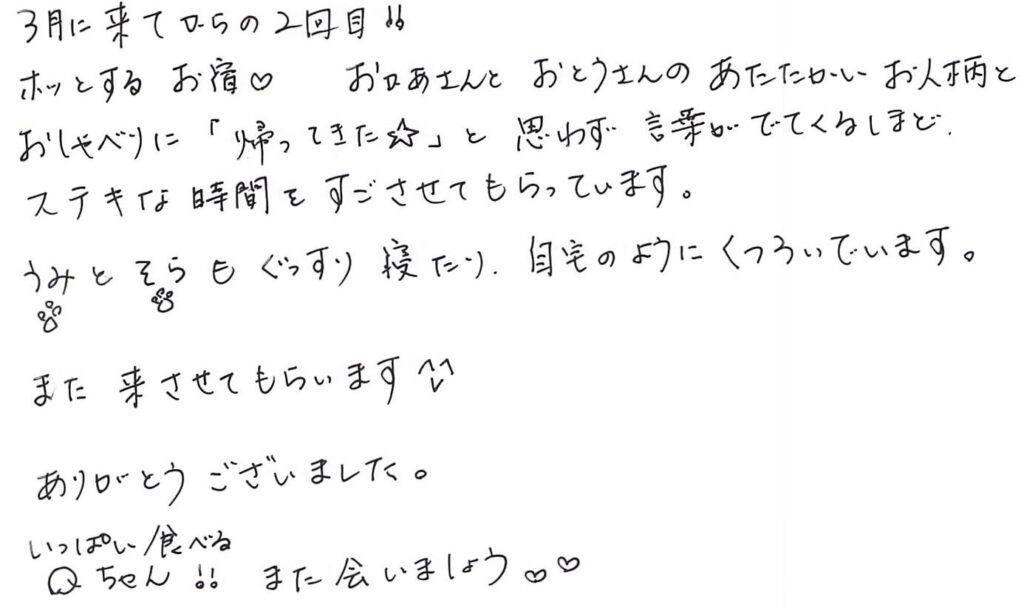 3月に来てからの2回目!!
ホッとするお宿♡ おかあさんとおとうさんのあたたかいお人柄と
おしゃべりに「帰ってきた☆」と思わず言葉がでてくるしほど、
ステキな時間をすごさせてもらっています。
うみとそらもぐっすり寝たり、自宅のようにくつろいでいます。
また来させてもらいます^^
ありがとうございました。
いっぱい食べる
Qちゃん!! また会いましょう♡♡